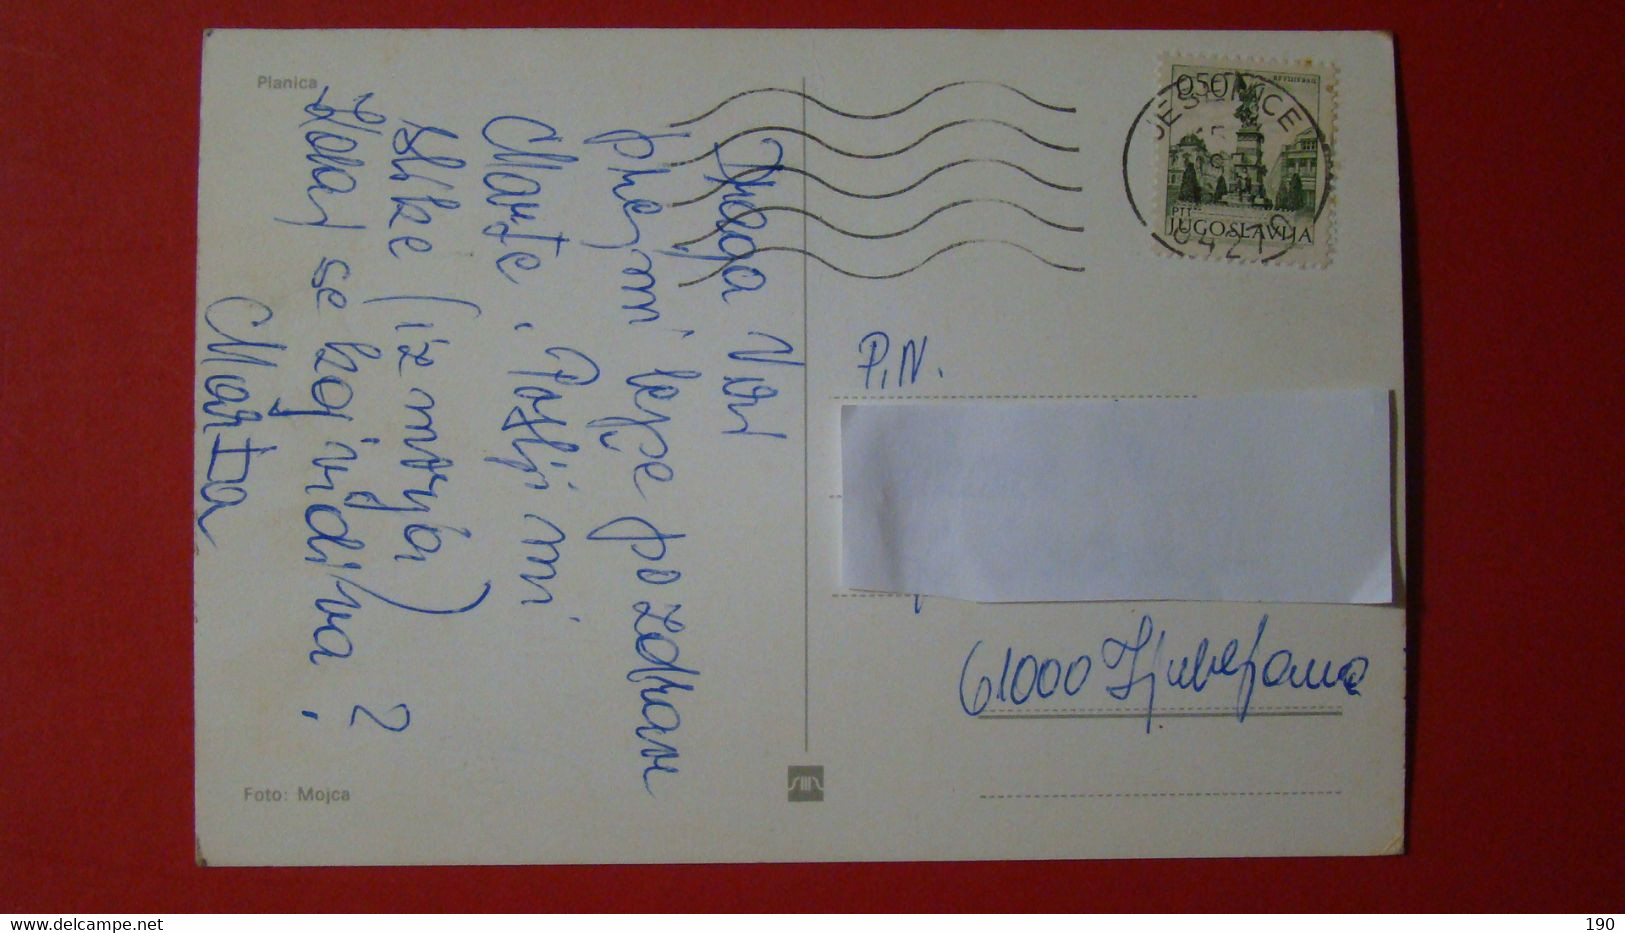 Planica
Draga Veri
prejmi lepe pozdrave
Marte. Pošlji mi
slike (iz morja)
Kdaj se kaj vidiva?
Marta
Foto: Mojca
0,50
КРУШЕВАЦ
PTT
JUGOSLAVIJA
JESENICE
6427
P.N.
61000 Ljubljana
delcampe.net
190